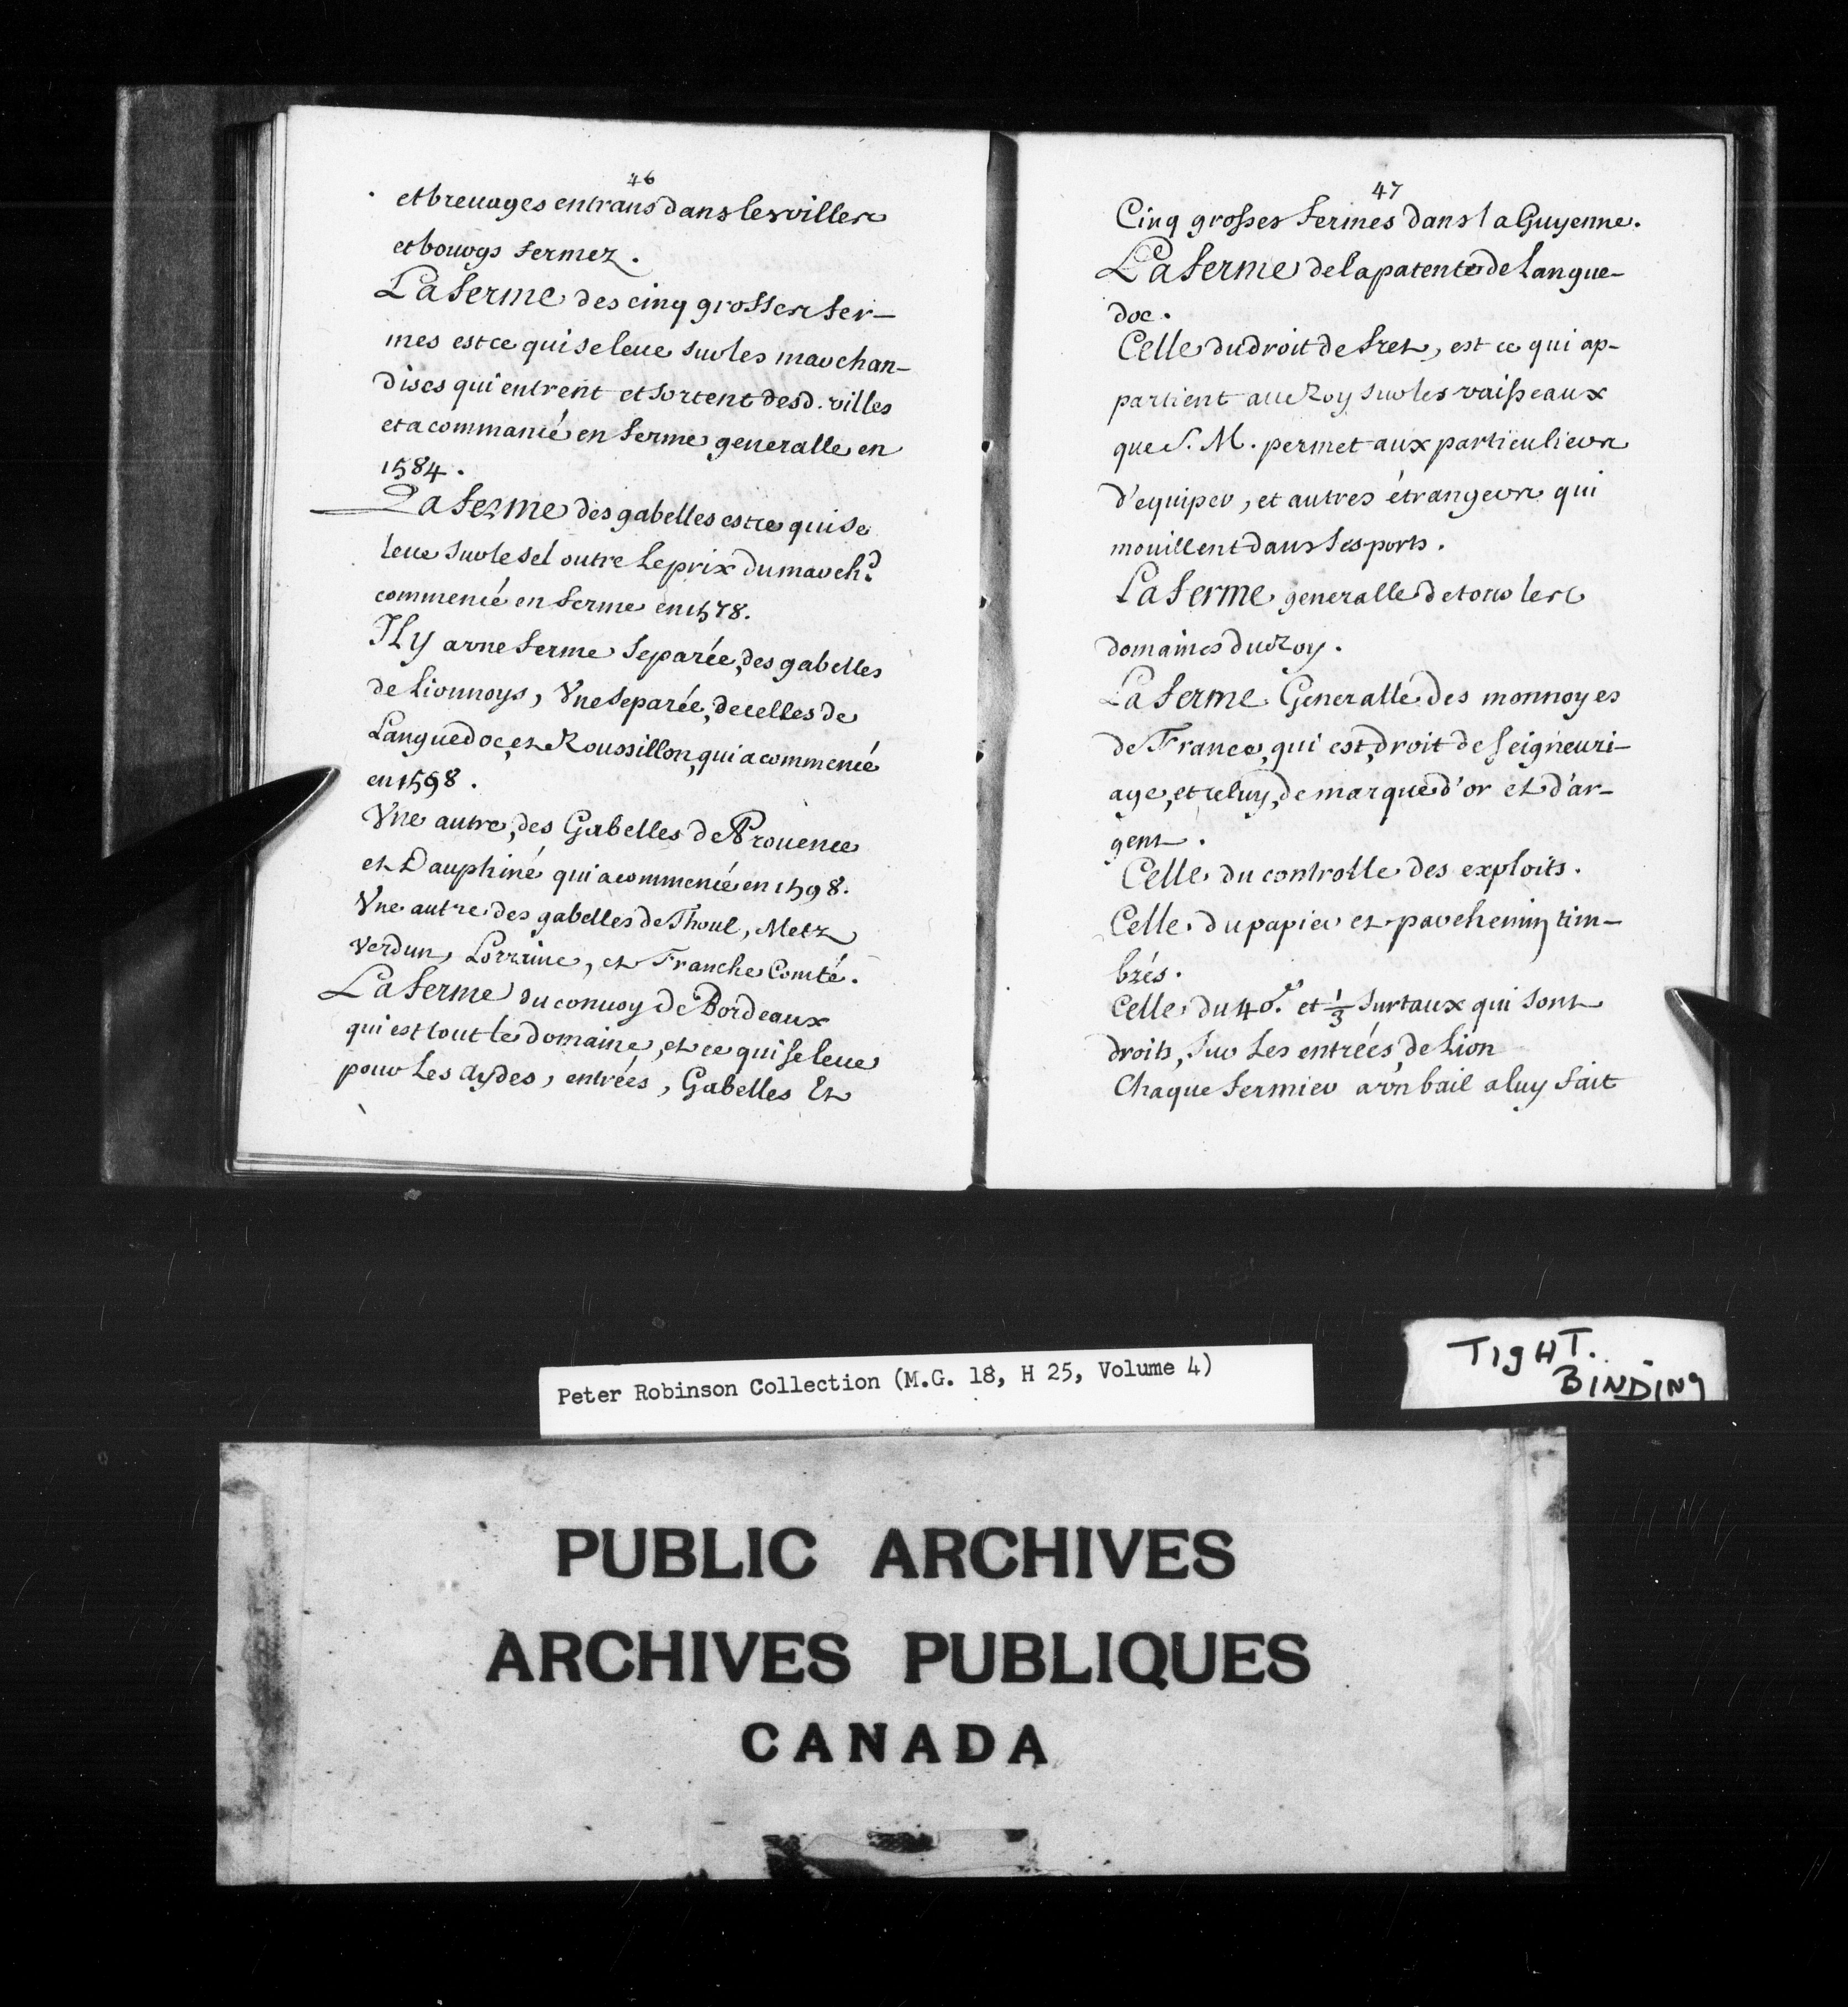 46
et breuages entrans dans les villes
et bourgs fermez.
La ferme des cinq grosses fer-
mes est ce qui se leue sur les marchan-
dises qui entrent et sortent desd. villes
et a commancé en ferme generalle en
1584.
La ferme des gabelles est ce qui se
leue sur le sel outre le prix du march.d
commencé en ferme en 1578.
Il y a vne ferme separée, des gabelles
de Lionnoys, Vne separée, de celles de
Languedoc, et Roussillon, qui a commencé
en 1598.
Vne autre, des Gabelles de Prouence
et Dauphiné qui a commencé en 1598.
Vne autre des gabelles de Thoul, Metz
Verdun, Lorraine, et Franche Comté.
La ferme du conuoy de Bordeaux
qui est tout le domaine, et ce qui se leue
pour Les aydes, entrées, Gabelles Et
47
Cinq grosses fermes dans la Guyenne.
La ferme de la patente de Langue-
doc.
Celle du droit de fret, est ce qui ap-
partient au Roy sur les vaisseaux
que S. M. permet aux particuliers
d'equiper, et autres étrangers qui
mouillent dans ses ports.
La ferme generalle de tous les
domaines du Roy.
La ferme Generalle des monnoyes
de France, qui est, droit de seigneuri-
age, et celuy, de marque d'or et d'ar-
gent.
Celle du controlle des exploits.
Celle du papier et parchemin tim-
brés.
Celle du 40.e et 1/3 surtaux qui sont
droits, sur Les entrées de Lion
Chaque fermier a vn bail a luy fait
Peter Robinson Collection (M.G. 18, H 25, Volume 4)
TIGHT.
BINDING
PUBLIC ARCHIVES
ARCHIVES PUBLIQUES
CANADA